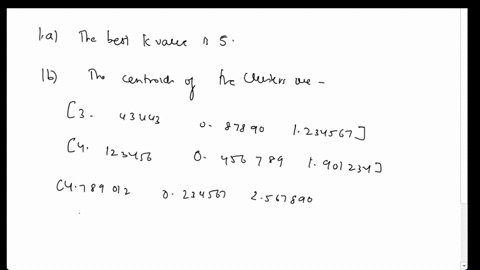 1.a) The best k value is 5.
1b) The centroids of the clusters are -
[3. 43443 0. 87890 1.234567]
[4. 123456 0. 456 789 1.901234]
[4.789012 0.234567 2.567890